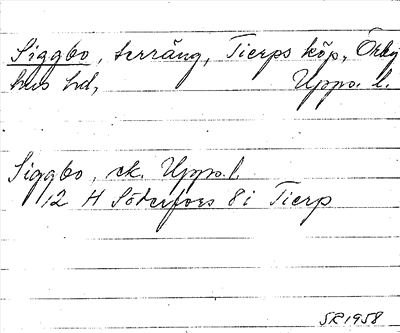 Siggbo, terräng, Tierps köp, Örby
hus hd, Upps. l.
Siggbo, ek. Upps. l.
12 H Söderfors 8 i Tierp
SR 1958